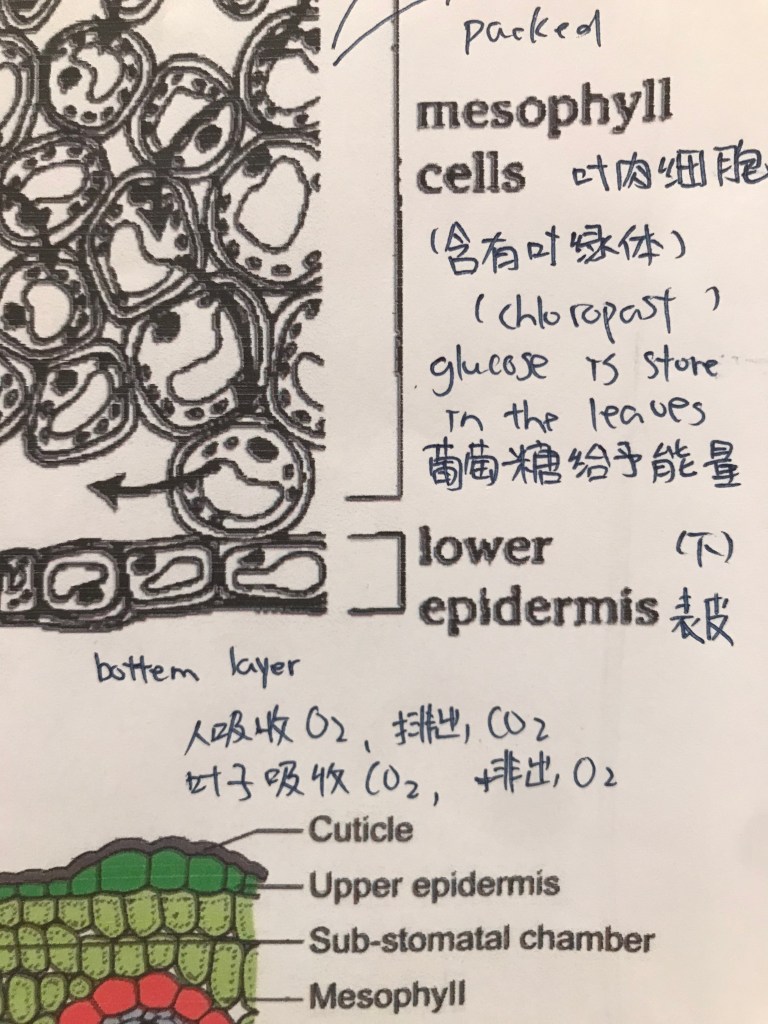 packed
mesophyll
cells 叶肉细胞
(含有叶绿体)
(chloropast)
glucose is store
in the leaves
葡萄糖给予能量
lower (下)
epidermis 表皮
bottem layer
人吸收 O2、排出, CO2
叶子吸收 CO2, 排出, O2
Cuticle
Upper epidermis
Sub-stomatal chamber
Mesophyll